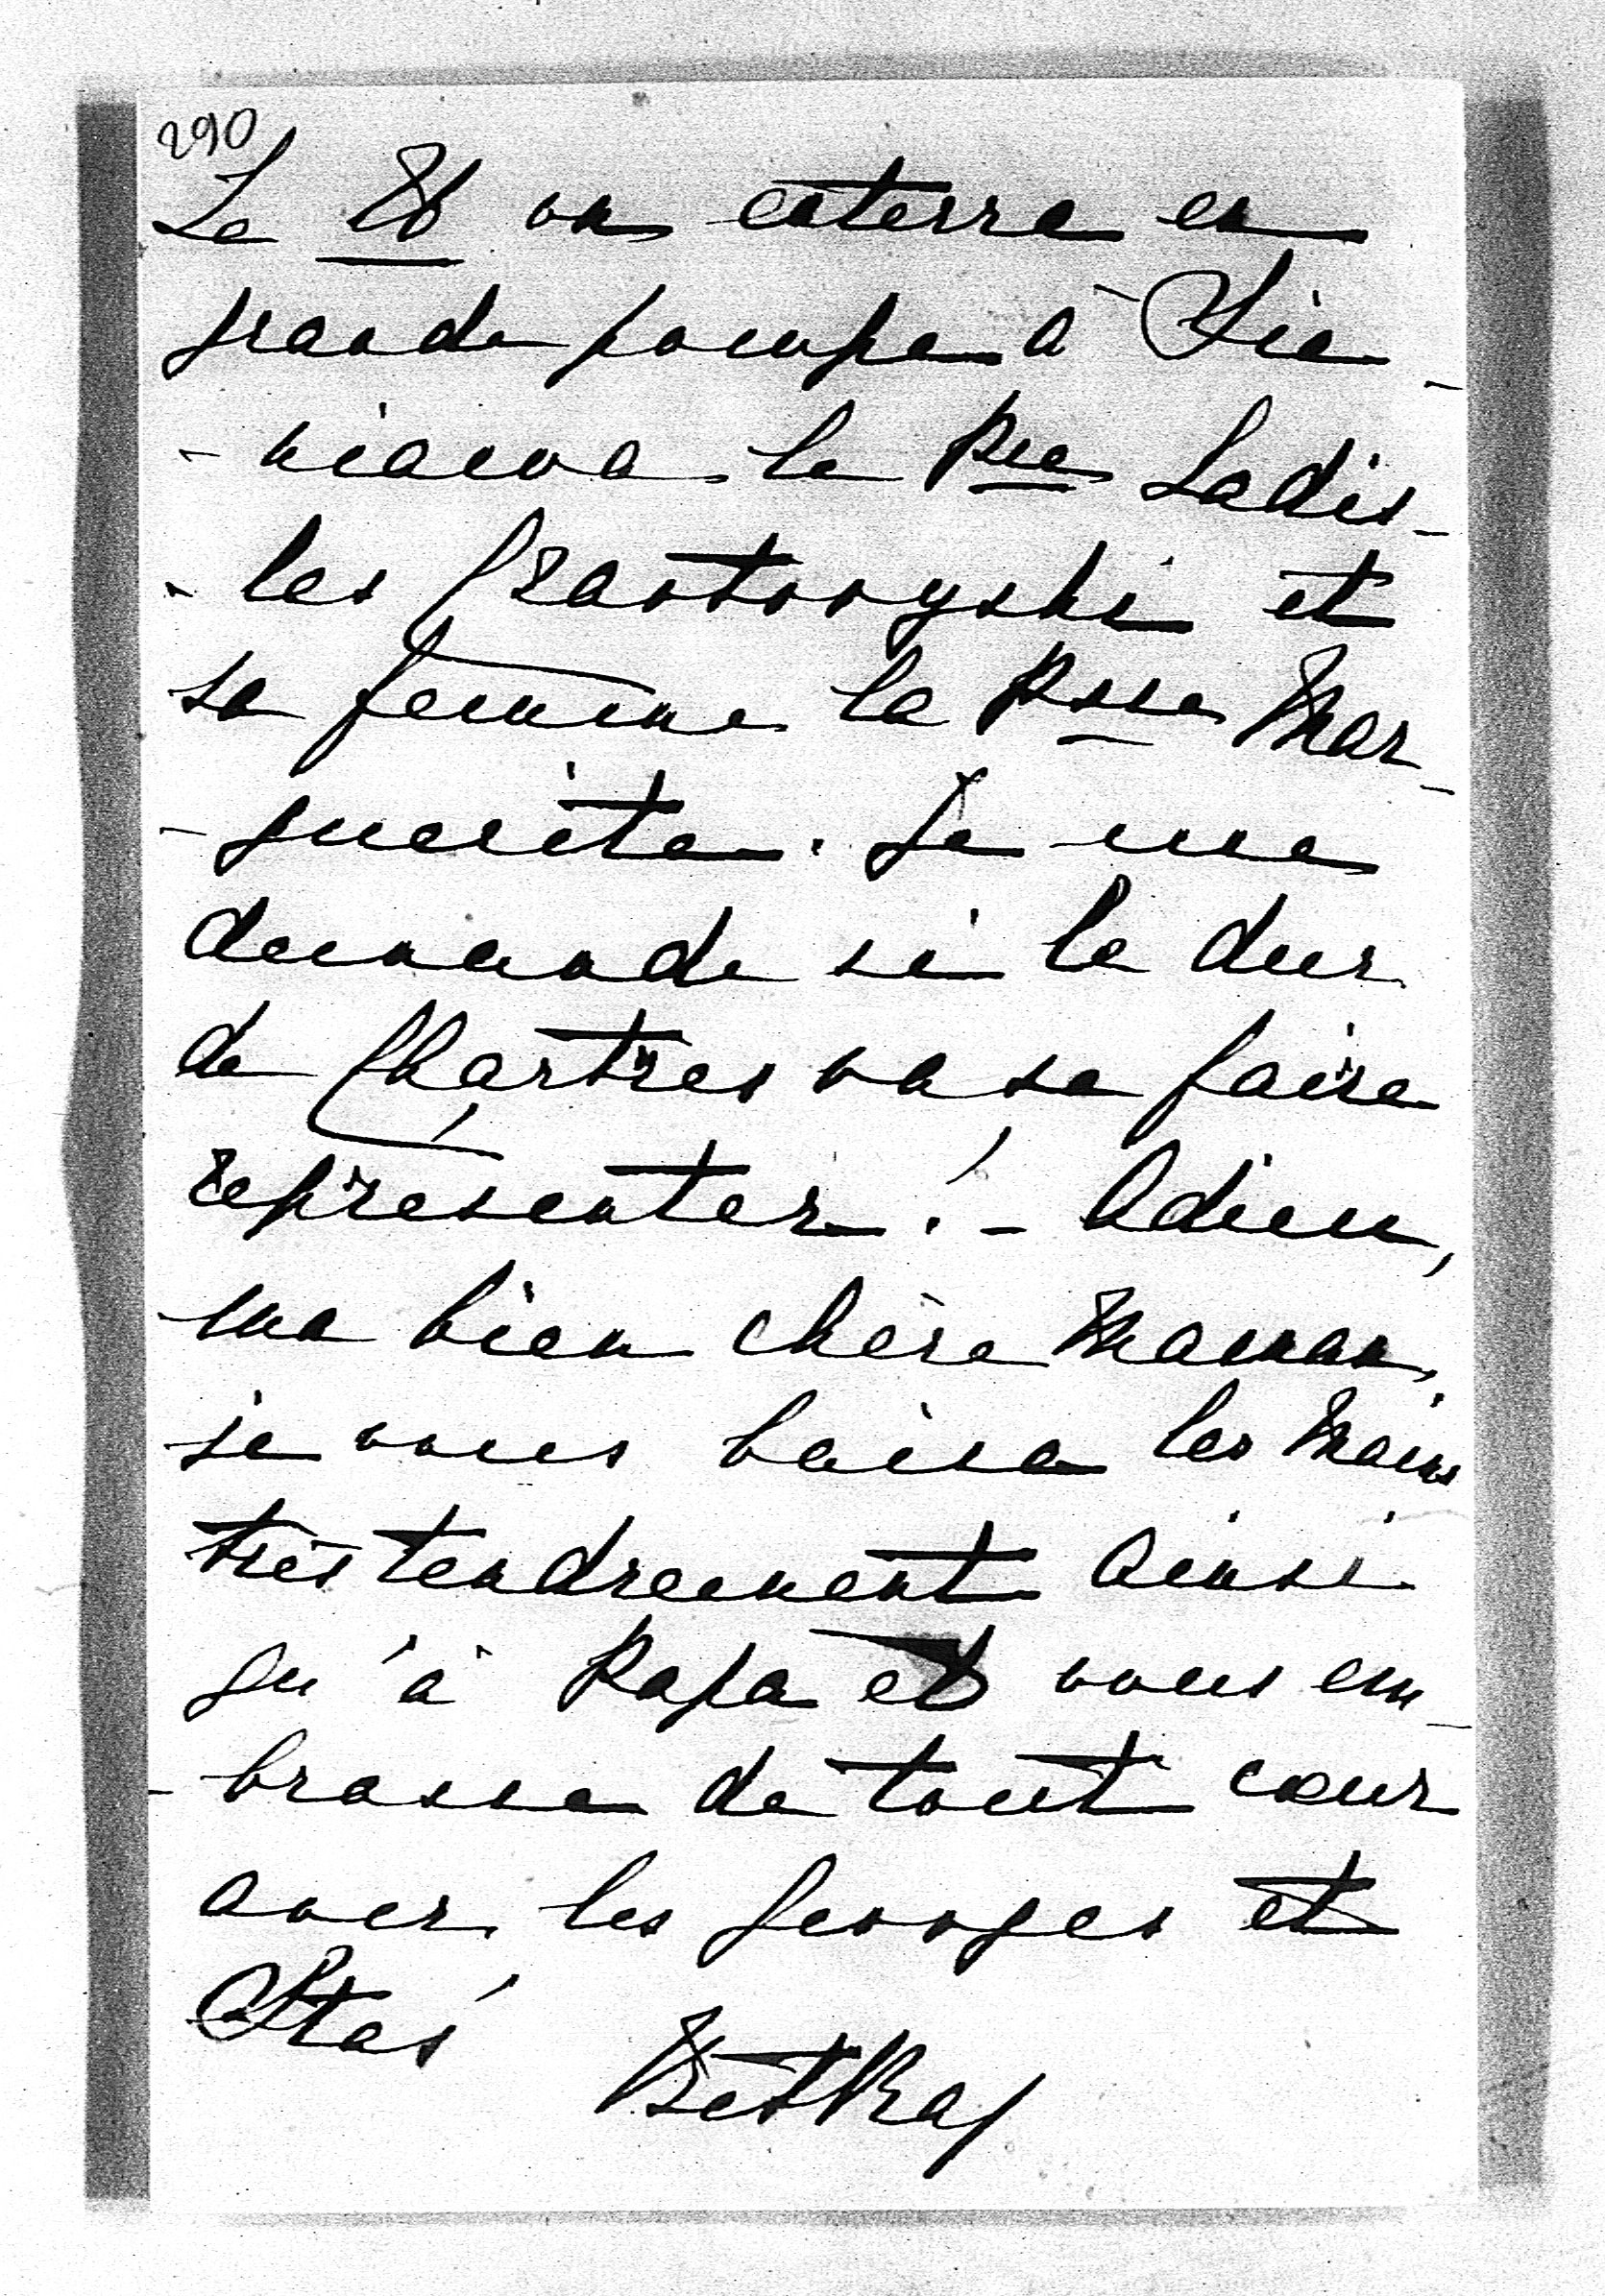 290
Le 26 on enterre en
grande pompe à Sie-
-niawa le Pce Ladis-
-las Czartoryski et
sa femme la Psse Mar-
-guerite. Je me
demande si le duc
de Chartres va se faire
représenter! - Adieu,
ma bien chère Maman,
je vous baise les mains
très tendrement ainsi
qu'à Papa et vous em-
-brasse de tout cœur
avec les Georges et
Staś